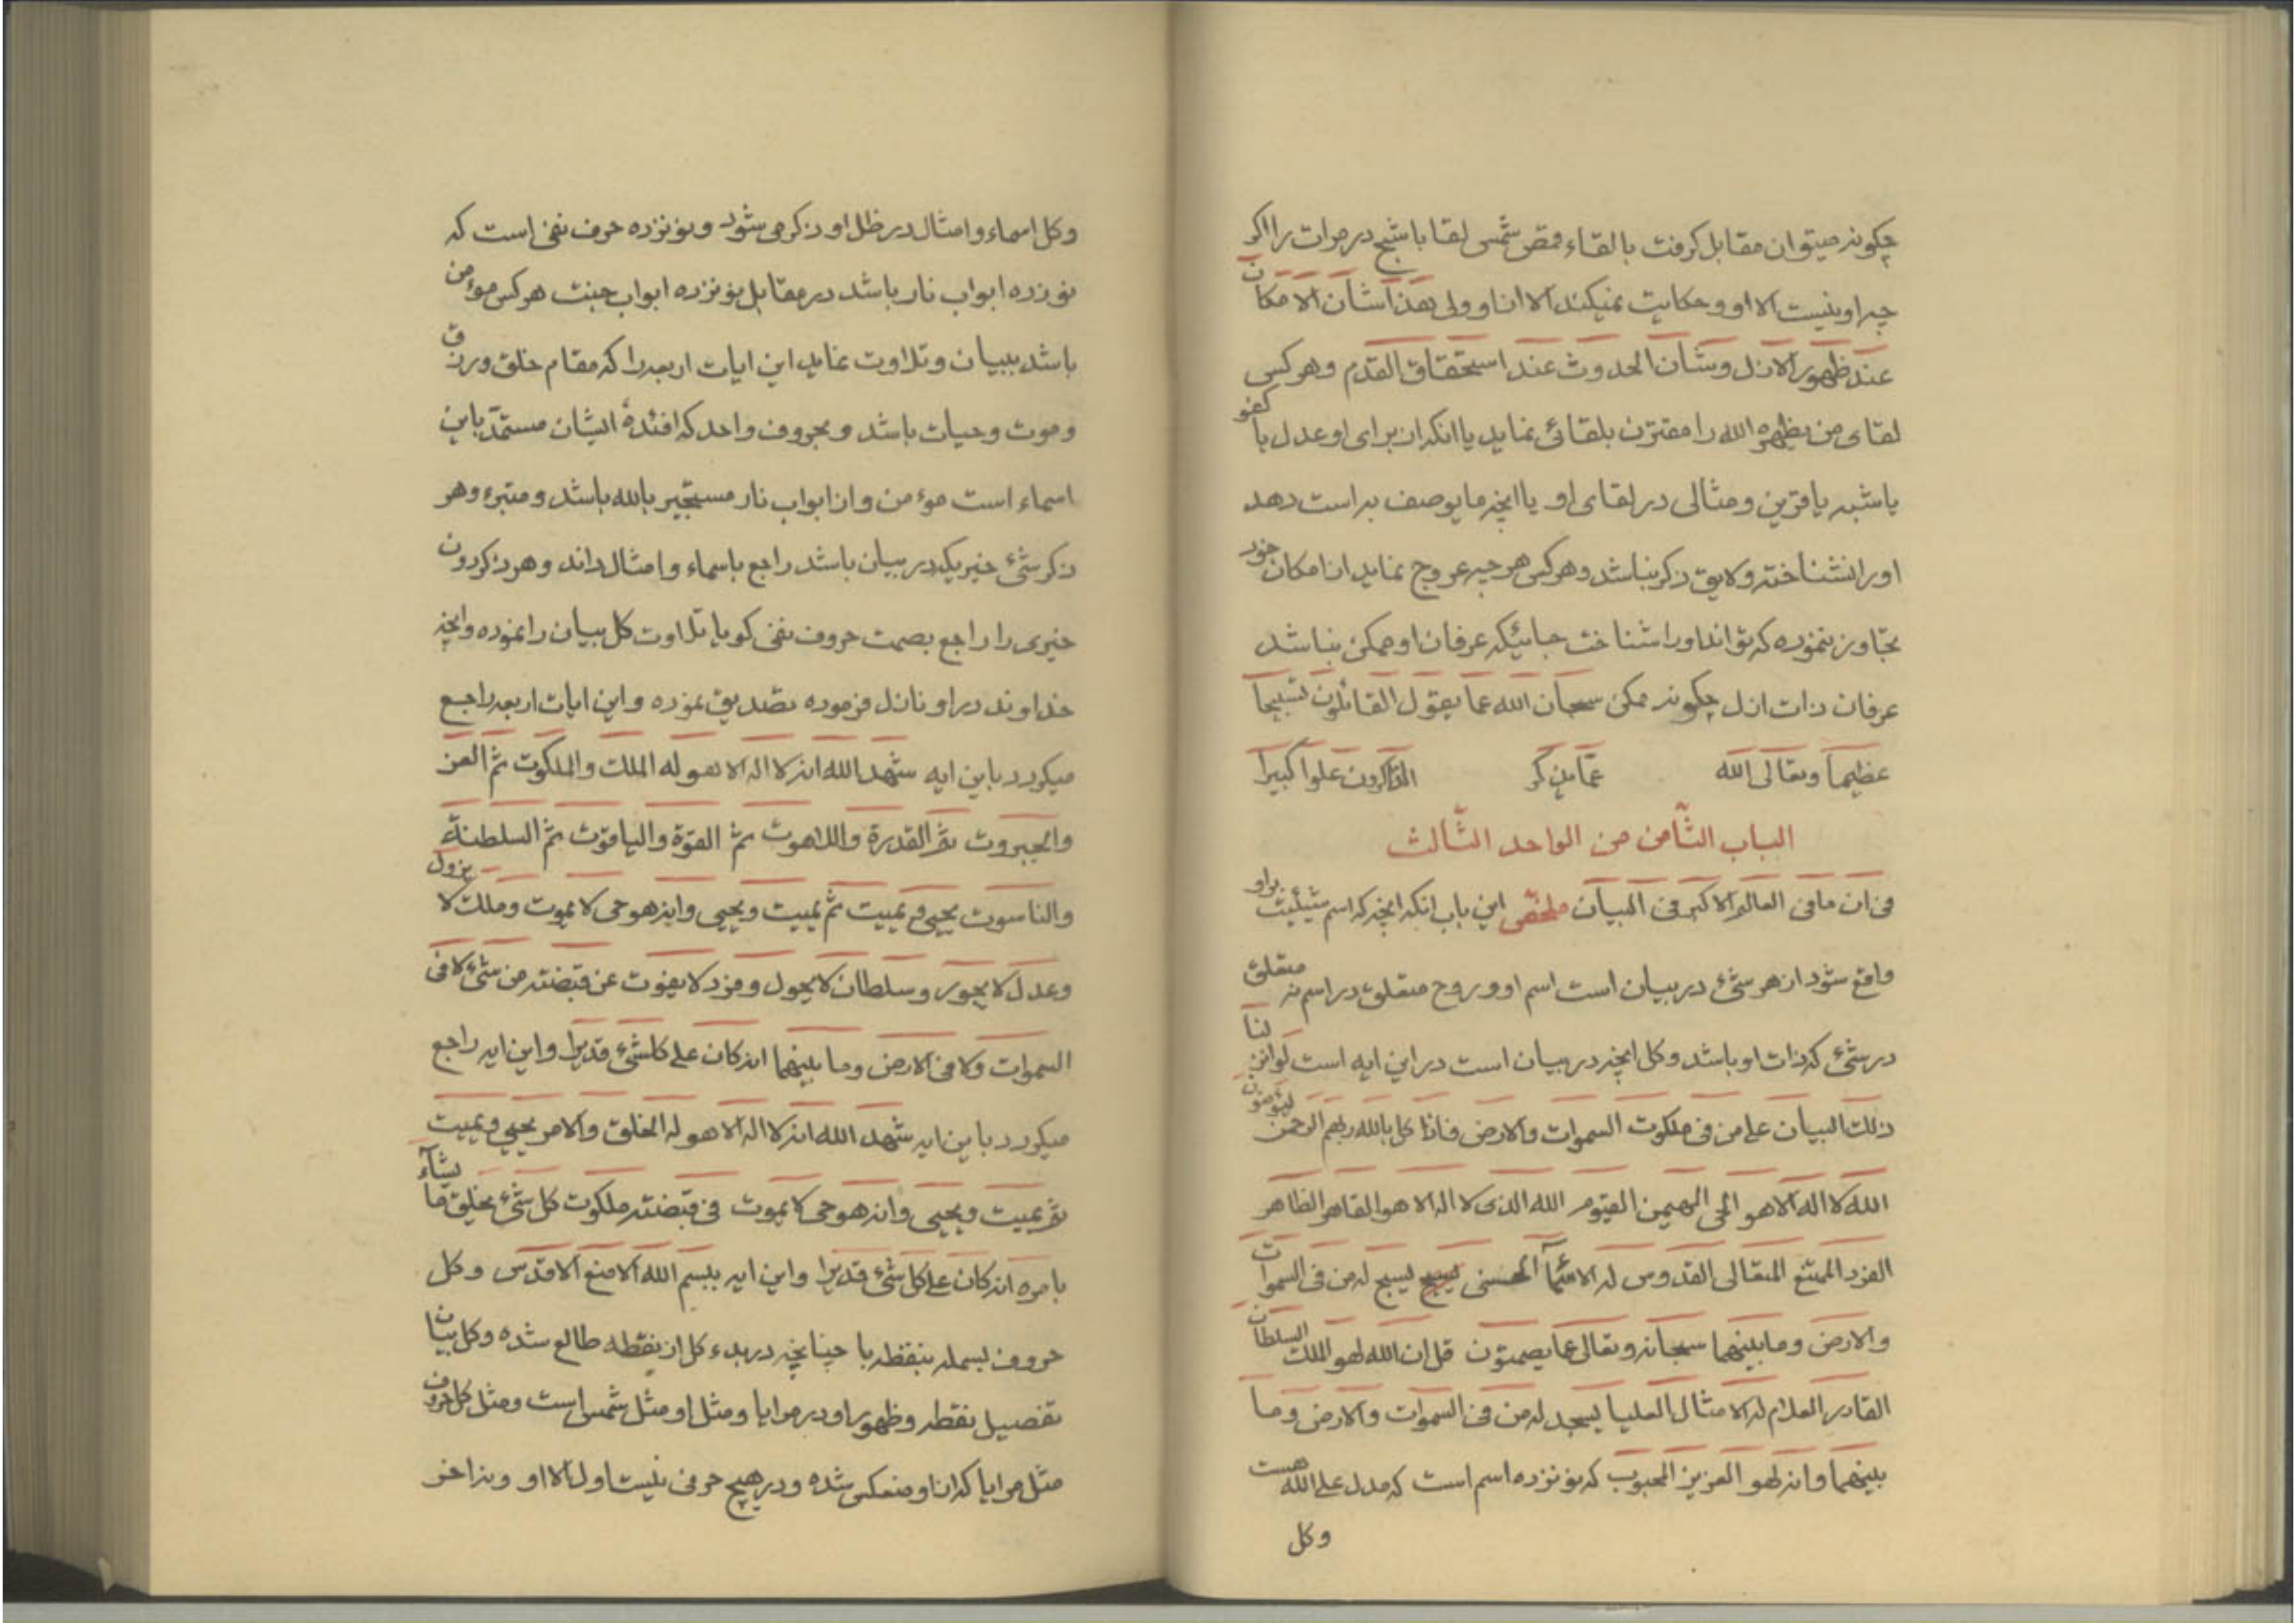 چکونه میتوان مقابل کرفت بالقاء قمص شمس لقا باشبح در مرات را اکر
چه او نیست الا او و حکایت نمیکند الا از او ولی هذا شأن الامکان
عند ظهور الازل وشأن الحدوث عند استحقاق القدم وهر کسی
لقای من یظهره الله را مقترن بلقائی نماید یا انکه از برای او عدل یا کفو
یا شبه یا قرین ومثالی در لقای او یا انچه ما یوصف به است دهد
اورا نشناخته ولایق ذکر نباشد وهر کس هر چه عروج نماید از امکان خود
تجاوز ننموده که تواند اورا شناخت جائیکه عرفان او ممکن نباشد
عرفان ذات ازل چکونه ممکن سبحان الله عما یقول القائلون تسبیحا
عظیما وتعالی الله عما یذکر الذاکرون علوا کبیرا
الباب الثامن من الواحد الثالث
فی ان ما فی العالم الاکبر فی البیان ملخص این باب انکه انچه که اسم شیئیت براو
واقع شود از هر شئ در بیان است اسم او و روح متعلق در اسم نه متعلق
در شئ که ذات او باشد وکل انچه در بیان است در این ایه است لو انزلنا
ذلک البیان علی من فی ملکوت السموات والارض فاذا کل بالله ربهم الرحمن لیؤمنون
الله لا اله الا هو الحی المهیمن القیوم الله الذی لا اله الا هو القاهر الظاهر
الفرد الممتنع المتعالی القدوس له الاسمآء الحسنی یسبح یسبح له من فی السموات
والارض وما بینهما سبحانه وتعالی عما یصمتون قل ان الله لهو الملک السلطان
القادر العلام له الامثال العلیا یسجد له من فی السموات والارض وما
بینهما وانه لهو العزیز المحبوب که نونزده اسم است که مدل علی الله هست
وکل
وکل اسماء وامثال در ظل او ذکر می شود ونونزده حرف نفی است که
نوزده ابواب نار باشد در مقابل نونزده ابواب جنت هر کس موءمن
باشد ببیان وتلاوت نماید این ایات اربعه را که مقام خلق ورزق
وموت وحیات باشد وبحروف واحد که افئدۀ ایشان مستمد باین
اسماء است موءمن واز ابواب نار مستجیر بالله باشد ومتبرء وهر
ذکر شئ خیریکه در بیان باشد راجع باسماء وامثال داند وهر ذکر دون
خیری را راجع بصمت حروف نفی کویا تلاوت کل بیان را نموده وانچه
خداوند در او نازل فرموده تصدیق نموده واین ایات اربعه راجع
میکردد باین ایه شهد الله انه لا اله الا هو له الملک والملکوت ثم العز
والجبروت ثم القدرة واللاهوت ثم القوة والیاقوت ثم السلطنة
والناسوت یحیی ویمیت ثم یمیت ویحیی وانه هو حی لا یموت وملک لا یزول
وعدل لا یجور وسلطان لا یحول وفرد لا یفوت عن قبضته من شئ لا فی
السموات ولا فی الارض وما بینهما انه کان علی کلشئ قدیرا واین ایه راجع
میکردد باین ایه شهد الله انه لا اله الا هو له الخلق والامر یحیی ویمیت
ثم یمیت ویحیی وانه هو حی لا یموت فی قبضته ملکوت کل شئ یخلق ما یشآء
بامره انه کان علی کل شئ قدیرا واین ایه ببسم الله الامنع الاقدس وکل
حروف بسمله بنقطه با چنانچه در بدء کل از نقطه طالع شده وکل بیان
تفصیل نقطه وظهور او در مرایا ومثل او مثل شمس است ومثل کل حروف
مثل مرایا که از او منعکس شده ودر هیچ حرفی نیست اول الا او ونه اخر